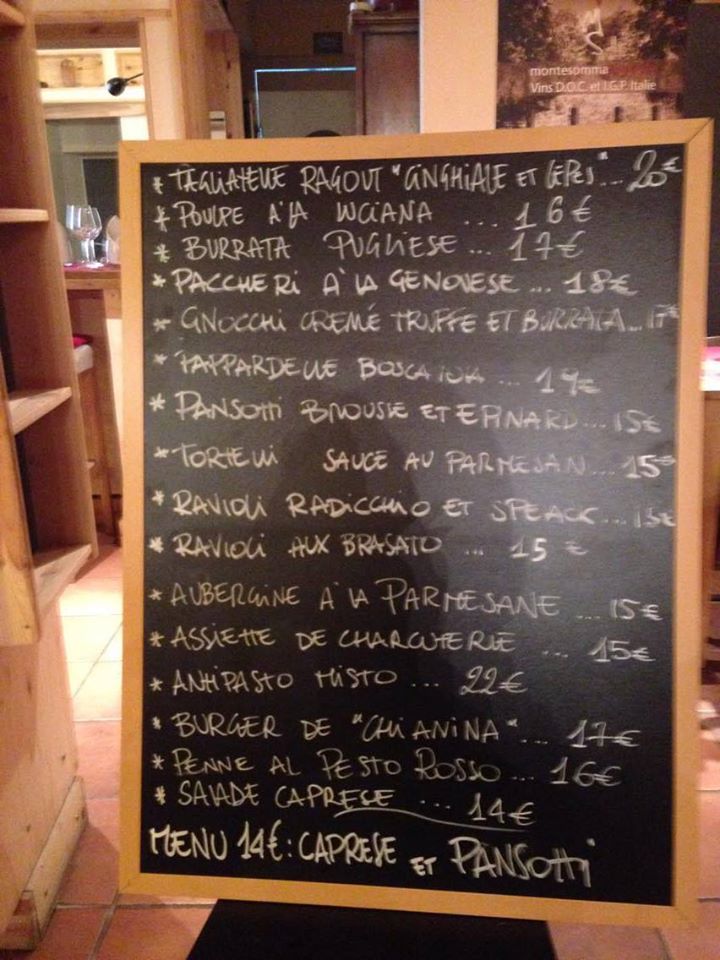 montesomma
Vins D.O.C. et I.G.P. Italie
* TAGLIATELLE RAGOUT "CINGHIALE ET CEPES"... 20€
* POULPE A'LA LUCIANA ... 16€
* BURRATA PUGLIESE ... 17€
* PACCHERI A'LA GENOVESE ... 18€
* GNOCCHI CREME TRUFFE ET BURRATA... 17€
* PAPPARDELLE BOSCAIOLA ... 19€
* PANSOTTI BROUSSE ET EPINARD... 15€
* TORTELLI SAUCE AU PARMESAN.... 15€
* RAVIOLI RADICCHIO ET SPEACK... 15€
* RAVIOLI AUX BRASATO ... 15 €
* AUBERGINE A'LA PARMESANE ... 15€
* ASSIETTE DE CHARCUTERIE ... 15€
* ANTIPASTO MISTO ... 22€
* BURGER DE "CHIANINA"... 17€
* PENNE AL PESTO ROSSO... 16€
* SALADE CAPRESE ... 14€
MENU 14€: CAPRESE ET PANSOTTI